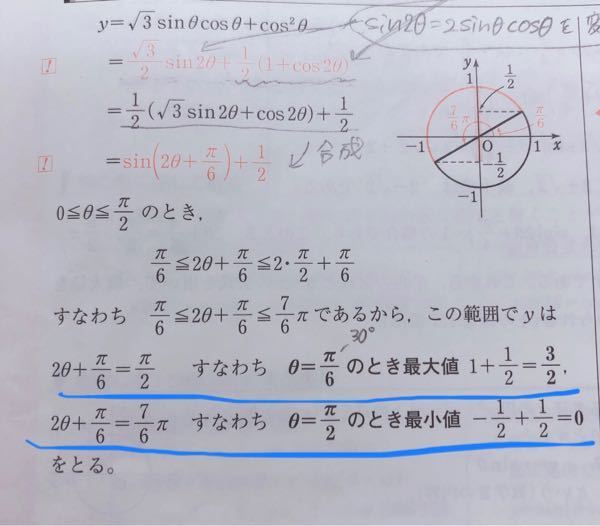 y=√3 sinθcosθ+cos²θ
sin2θ=2sinθcosθを
! =√3/2 sin2θ+1/2(1+cos2θ)
=1/2(√3 sin2θ+cos2θ)+1/2
! =sin(2θ+π/6)+1/2
合成
y
1
1/2
7/6 π
π/6
-1
O
1
x
-1/2
-1
0≦θ≦π/2 のとき,
π/6≦2θ+π/6≦2・π/2+π/6
すなわち π/6≦2θ+π/6≦7/6 π であるから, この範囲で y は
30°
2θ+π/6=π/2 すなわち θ=π/6 のとき最大値 1+1/2=3/2,
2θ+π/6=7/6 π すなわち θ=π/2 のとき最小値 -1/2+1/2=0
をとる。